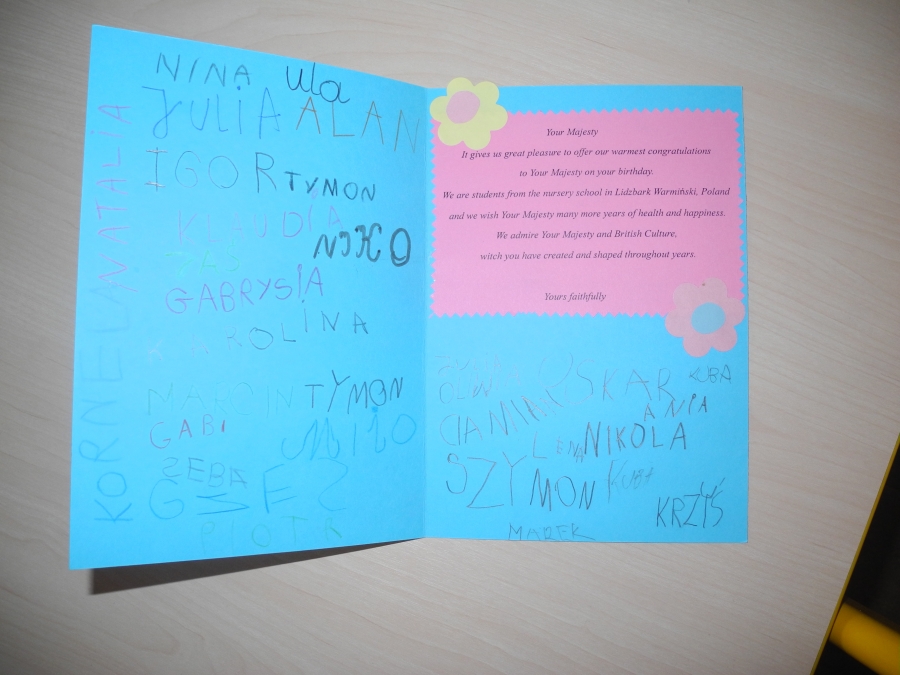 NINA ula
JULIA ALAN
IGOR TYMON
KLAUDIA
NIKO
GABRYSIA
KAROLINA
MARCIN TYMON
GABI MIŁO
SEBA
PIOTR
NATALIA
KORNEL
Your Majesty
It gives us great pleasure to offer our warmest congratulations
to Your Majesty on your birthday.
We are students from the nursery school in Lidzbark Warmiński, Poland
and we wish Your Majesty many more years of health and happiness.
We admire Your Majesty and British Culture,
witch you have created and shaped throughout years.
Yours faithfully
OSKAR KUBA
ANIA
LENA NIKOLA
SZYMON KUBA
KRZYŚ
MAREK